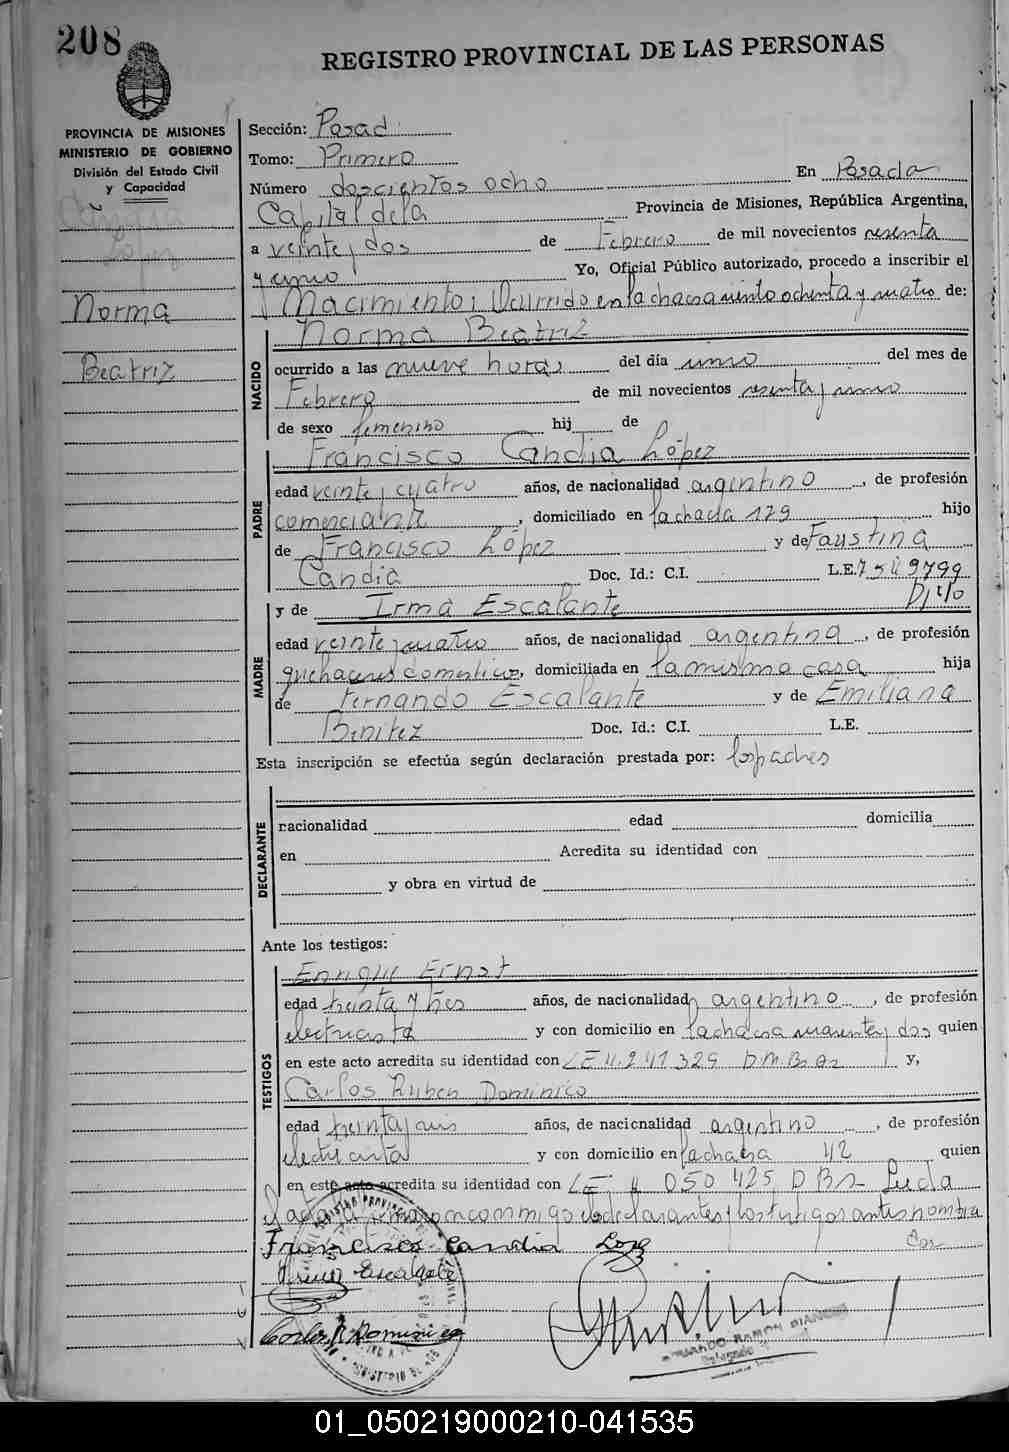 208
REGISTRO PROVINCIAL DE LAS PERSONAS
PROVINCIA DE MISIONES
MINISTERIO DE GOBIERNO
División del Estado Civil
y Capacidad
Norma
Beatriz
Sección: Posad
Tomo: Primero
Número doscientos ocho En Posada
Capital de la Provincia de Misiones, República Argentina,
a veinte y dos de Febrero de mil novecientos sesenta
y uno Yo, Oficial Público autorizado, procedo a inscribir el
Nacimiento; Ocurrido en la chacra ciento ochenta y cuatro de:
Norma Beatriz
NACIDO
ocurrido a las nueve horas del día uno del mes de
Febrero de mil novecientos sesenta y uno
de sexo femenino hij de
Francisco Candia López
PADRE
edad veinte y cuatro años, de nacionalidad argentino, de profesión
comerciante, domiciliado en la chacra 179 hijo
de Francisco López y de Faustina
Candia Doc. Id.: C.I. L.E. 7549799
y de Irma Escalante
MADRE
edad veinte y cuatro años, de nacionalidad argentina, de profesión
quehaceres domesticos, domiciliada en la misma casa hija
de Fernando Escalante y de Emiliana
Benitez Doc. Id.: C.I. L.E.
Esta inscripción se efectúa según declaración prestada por: los padres
DECLARANTE
nacionalidad edad domicilia
en Acredita su identidad con
y obra en virtud de
Ante los testigos:
TESTIGOS
Enrique Ernst
edad treinta y tres años, de nacionalidad argentino, de profesión
electricista y con domicilio en la chacra cuarenta y dos quien
en este acto acredita su identidad con LE 4.241.329 D.M.Bs As y,
Carlos Ruben Dominico
edad treinta y seis años, de nacionalidad argentino, de profesión
electricista y con domicilio en la chacra 42 quien
en este acto acredita su identidad con LE 4 050 425 D Bs Leida
el acta la firmaron conmigo los declarantes y los testigos antes nombra
dos
Francisco Candia Lopez
Irma Escalante
Carlos R Dominico
RAMON
Delegado
01_050219000210-041535